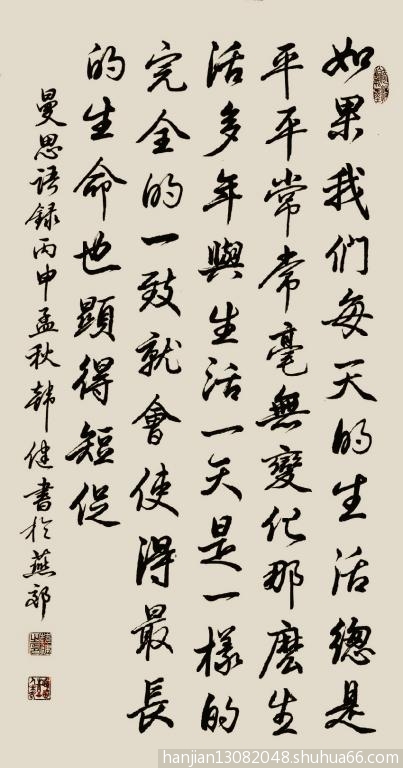 如果我们每天的生活總是
平平常常毫無變化那麼生
活多年與生活一天是一樣的
完全的一致就會使得最長
的生命也顯得短促
曼思语錄丙申孟秋韩健書於燕郊
hanjian13082048.shuhua66.com